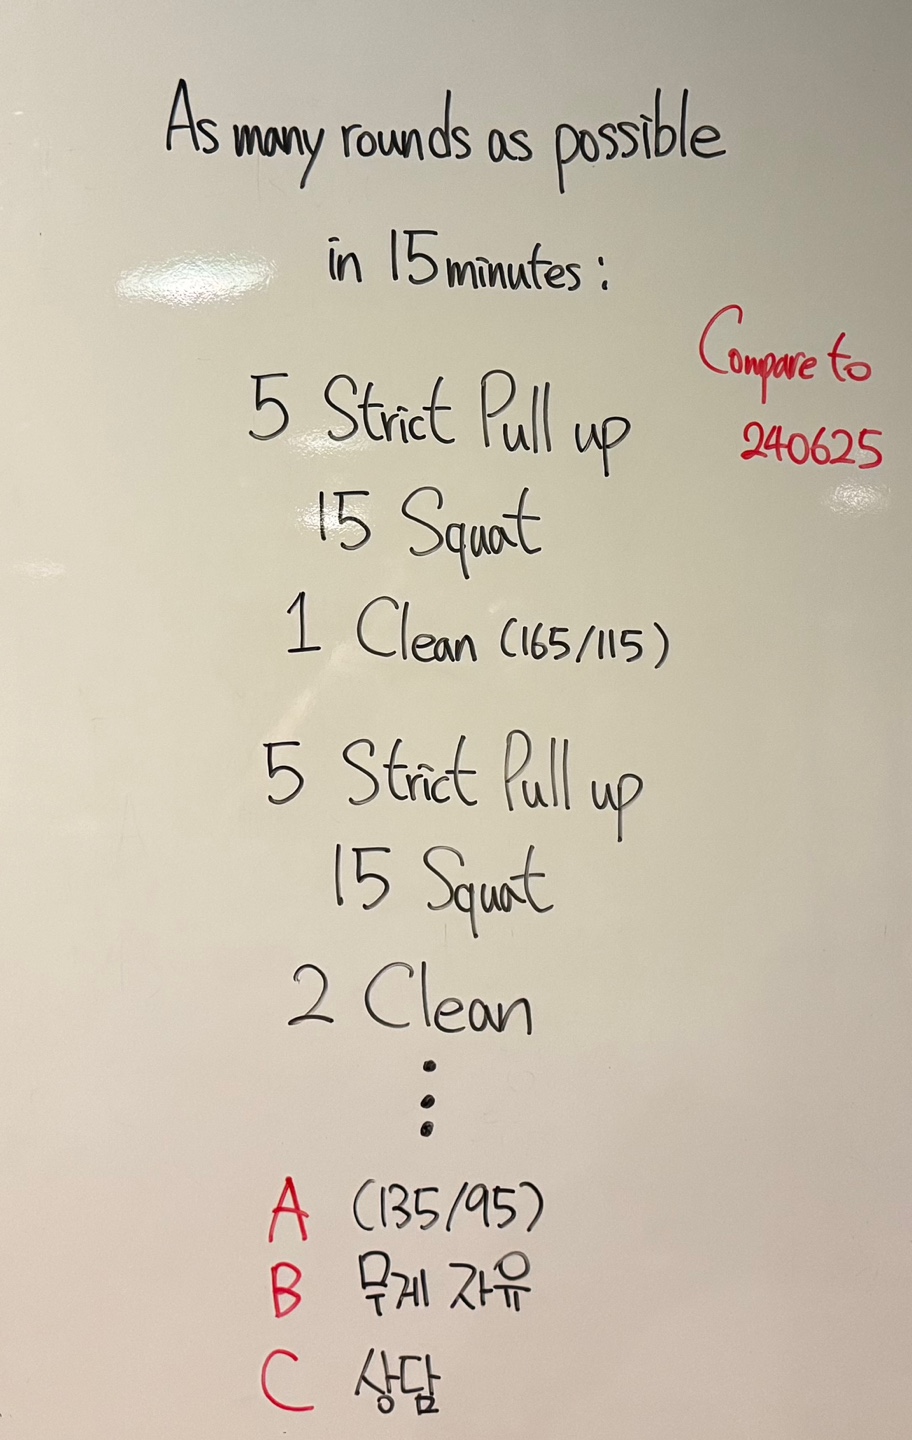 As many rounds as possible
in 15 minutes:
Compare to
240625
5 Strict Pull up
15 Squat
1 Clean (165/115)
5 Strict Pull up
15 Squat
2 Clean
⋮
A (135/95)
B 무게 자유
C 상담